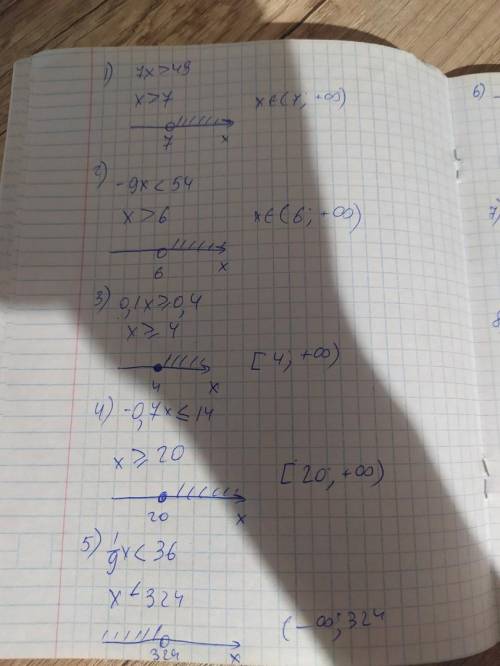 1) 7x>49
x>7
x∈(7; +∞)
7 x
2) -9x<54
x>6
x∈(6; +∞)
6 x
3) 0,1x⩾0,4
x⩾4
[4; +∞)
4 x
4) -0,7x⩽14
x⩾20
[20; +∞)
20 x
5) 1/9x<36
x<324
(-∞; 324
324 x
6)
7)
8